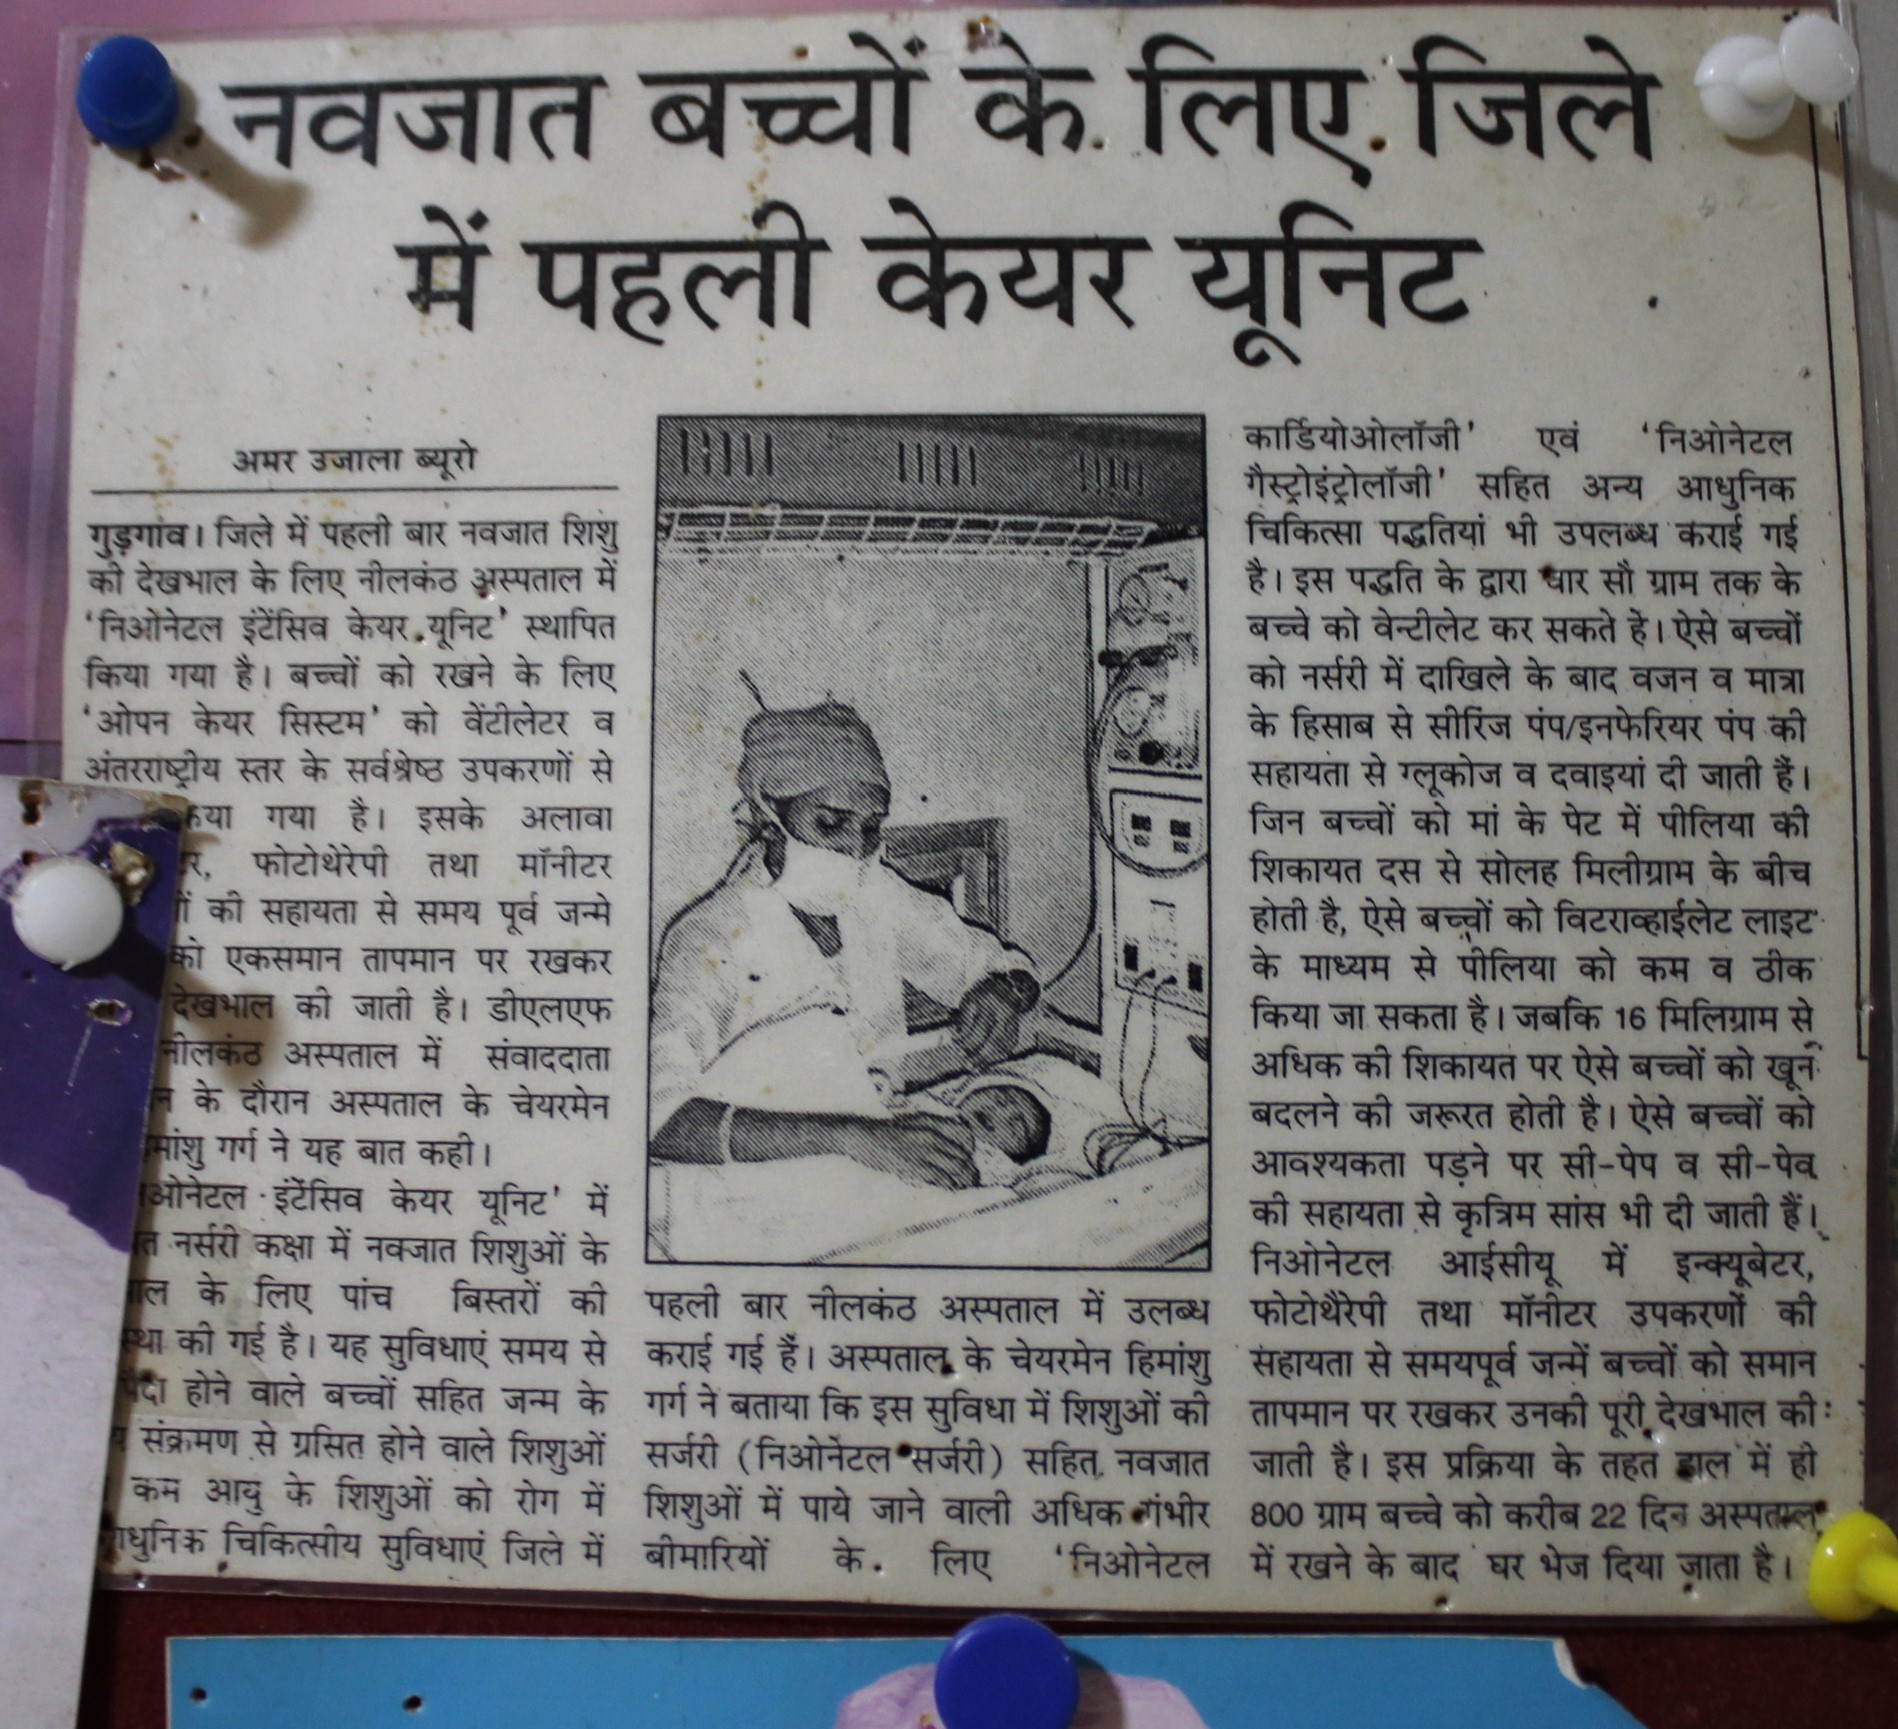 नवजात बच्चों के लिए जिले
में पहली केयर यूनिट
अमर उजाला ब्यूरो
गुड़गांव। जिले में पहली बार नवजात शिशु
की देखभाल के लिए नीलकंठ अस्पताल में
‘निओनेटल इंटेंसिव केयर यूनिट’ स्थापित
किया गया है। बच्चों को रखने के लिए
‘ओपन केयर सिस्टम’ को वेंटीलेटर व
अंतरराष्ट्रीय स्तर के सर्वश्रेष्ठ उपकरणों से
गया है। इसके अलावा
फोटोथेरेपी तथा मॉनीटर
की सहायता से समय पूर्व जन्मे
को एकसमान तापमान पर रखकर
देखभाल की जाती है। डीएलएफ
नीलकंठ अस्पताल में संवाददाता
के दौरान अस्पताल के चेयरमेन
गर्ग ने यह बात कही।
इंटेंसिव केयर यूनिट’ में
नर्सरी कक्षा में नवजात शिशुओं के
के लिए पांच बिस्तरों की
की गई है। यह सुविधाएं समय से
होने वाले बच्चों सहित जन्म के
संक्रमण से ग्रसित होने वाले शिशुओं
कम आयु के शिशुओं को रोग में
चिकित्सीय सुविधाएं जिले में
पहली बार नीलकंठ अस्पताल में उलब्ध
कराई गई हैं। अस्पताल के चेयरमेन हिमांशु
गर्ग ने बताया कि इस सुविधा में शिशुओं की
सर्जरी (निओनेटल सर्जरी) सहित नवजात
शिशुओं में पाये जाने वाली अधिक गंभीर
बीमारियों के लिए ‘निओनेटल
कार्डियोओलॉजी’ एवं ‘निओनेटल
गैस्ट्रोइंट्रोलॉजी’ सहित अन्य आधुनिक
चिकित्सा पद्धतियां भी उपलब्ध कराई गई
है। इस पद्धति के द्वारा चार सौ ग्राम तक के
बच्चे को वेन्टीलेट कर सकते हे। ऐसे बच्चों
को नर्सरी में दाखिले के बाद वजन व मात्रा
के हिसाब से सीरिंज पंप/इनफेरियर पंप की
सहायता से ग्लूकोज व दवाइयां दी जाती हैं।
जिन बच्चों को मां के पेट में पीलिया की
शिकायत दस से सोलह मिलीग्राम के बीच
होती है, ऐसे बच्चों को विटराव्हाईलेट लाइट
के माध्यम से पीलिया को कम व ठीक
किया जा सकता है। जबकि 16 मिलिग्राम से
अधिक की शिकायत पर ऐसे बच्चों को खून
बदलने की जरूरत होती है। ऐसे बच्चों को
आवश्यकता पड़ने पर सी-पेप व सी-पेव
की सहायता से कृत्रिम सांस भी दी जाती हैं।
निओनेटल आईसीयू में इन्क्यूबेटर,
फोटोथैरेपी तथा मॉनीटर उपकरणों की
सहायता से समयपूर्व जन्में बच्चों को समान
तापमान पर रखकर उनकी पूरी देखभाल की
जाती है। इस प्रक्रिया के तहत हाल में ही
800 ग्राम बच्चे को करीब 22 दिन अस्पताल
में रखने के बाद घर भेज दिया जाता है।